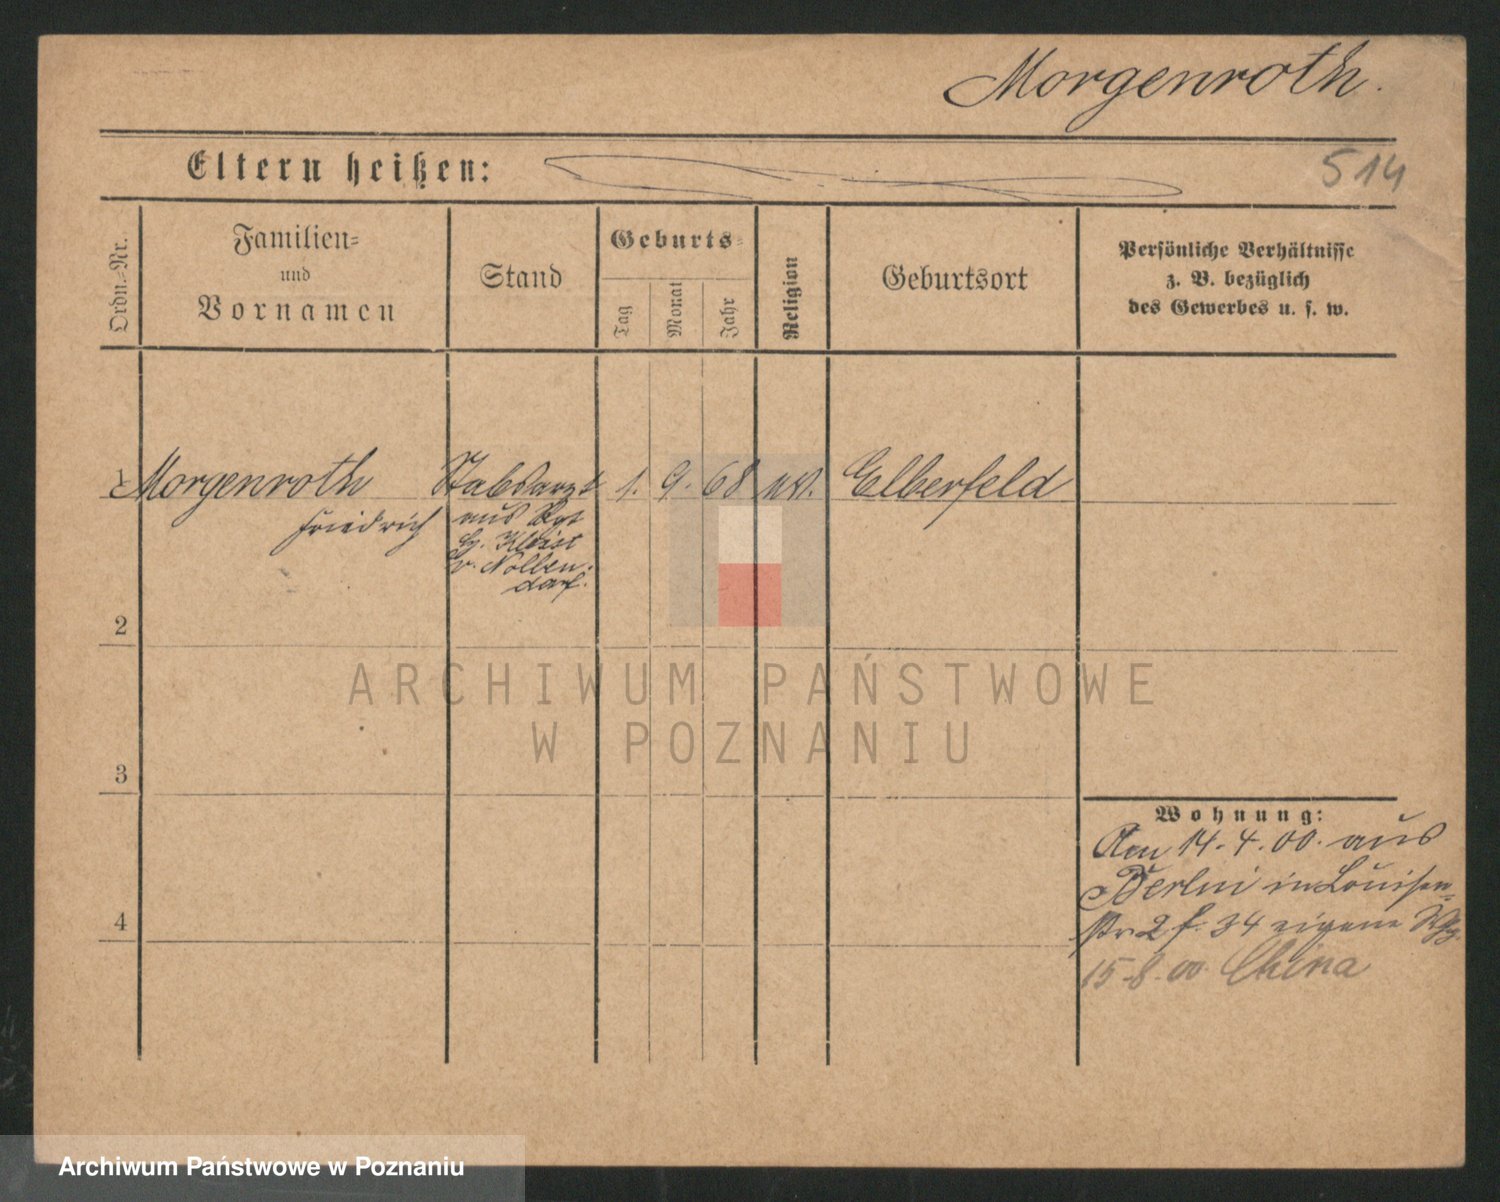 Morgenroth.
Eltern heißen:
514
Ordn.=Nr.
Familien=
und
Vornamen
Stand
Geburts=
Tag
Monat
Jahr
Religion
Geburtsort
Persönliche Verhältnisse
z. B. bezüglich
des Gewerbes u. s. w.
1 Morgenroth Stabsarzt 1. 9. 68 ev. Elberfeld
Friedrich aus Rgt
Kleist
v. Nollen-
dorf.
2
ARCHIWUM PAŃSTWOWE
W POZNANIU
3
Wohnung:
Am 14.4.00. aus
Berlin in Louisen-
str 2 f. 34 eigene Whg.
15.8.00 China
4
Archiwum Państwowe w Poznaniu